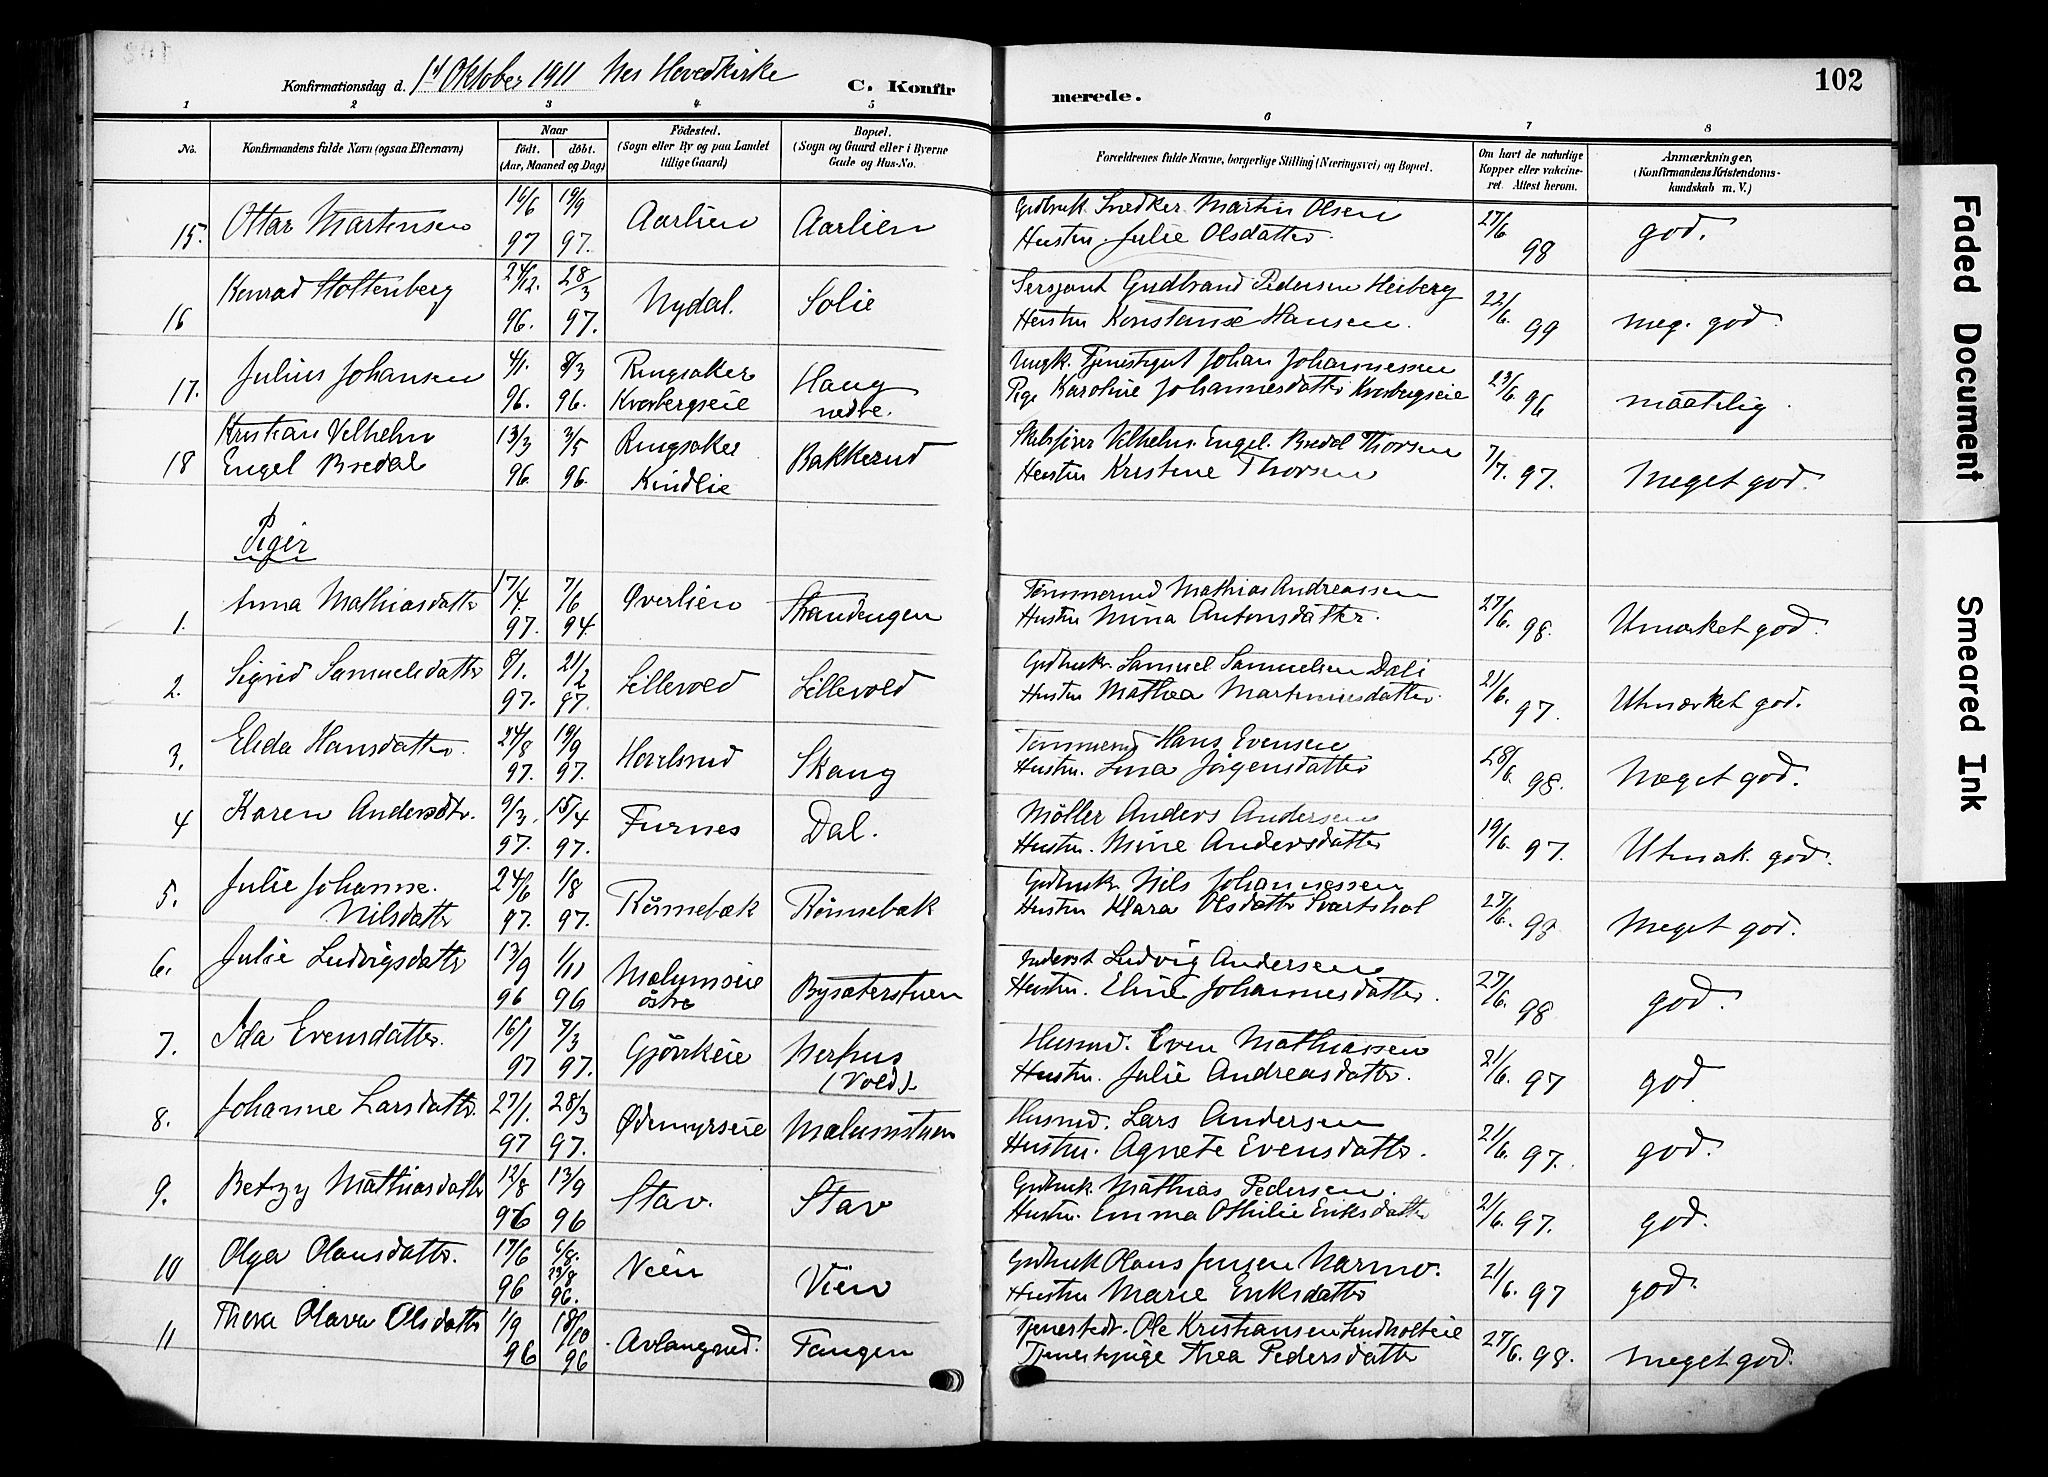 Konfirmationsdag d. 1ste Oktober 1911 Nes Hovedkirke
C. Konfirmerede.
102
1 2 3 4 5 6 7 8
No.
Konfirmandens fulde Navn (ogsaa Efternavn)
Naar
født. døbt.
(Aar, Maaned og Dag)
Fødested.
(Sogn eller By og paa Landet
tillige Gaard)
Bopæl.
(Sogn og Gaard eller i Byerne
Gade og Hus-No.
Forældrenes fulde Navne, borgerlige Stilling (Næringsvei) og Bopæl.
Om havt de naturlige
Kopper eller vakcine-
ret. Attest herom.
Anmærkninger.
(Konfirmandens Kristendoms-
kundskab m. V.)
15. Ottar Martinsen 16/6 97 19/9 97. Aarlien Aarlien
Grdbruk. Snedker Martin Olsen
Hustru Julie Olsdatter. 27/6 98 god.
16 Konrad Stoltenberg 24/12. 96. 28/3 97. Nydal. Solie
Sersjant Gudbrand Pedersen Heiberg
Hustru Konstanse Hansen. 22/6. 99 meg. god.
17. Julius Johansen 4/1. 96. 8/3 96. Ringsaker Kvarbergseie Haug nedre.
Ungk. Tjenestgut Johan Johannessen
Pige Karoline Johannesdatter Kvarbergseie 23/6 96 maatelig.
18 Kristian Vilhelm
Engel Bredal 13/3 96. 3/5 96. Ringsaker Kindlie Bakkerud
Vilhelm Engel. Bredal Thorsen
Hustru Kristine Thorsen 7/7. 97. Meget god.
Piger
1. Anna Mathiasdatter 17/4. 97. 7/6 94. Øverlien Strandengen
Tømmermd Mathias Andreassen
Hustru Mina Antonsdatter. 27/6. 98. Utmærket god.
2. Sigrid Samuelsdatter 8/1. 97. 21/2 97. Lillevold Lillevold
Grdbruk. Samuel Samuelsen Dali
Hustru Mathea Martiniusdatter. 21/6. 97. Utmærket god.
3. Elida Hansdatter. 24/8 97. 19/9 97. Skaug
Tømmermd Hans Evensen
Hustru. Lina Jørgensdatter 28/6. 98. Meget god.
4 Karen Andersdtr. 9/3. 97. 15/4 97. Furnes Dal.
Møller Anders Andersen
Hustru. Mine Andersdatter 19/6. 97. Utmærk. god.
5. Julie Johanne.
Nilsdatter 24/6 97. 1/8 97. Rønnebæk Rønnebæk
Grdbruk. Nils Johannessen
Hustru Klara Olsdatter Svartshol 27/6. 98 Meget god.
6. Julie Ludvigsdatter 13/9 96 1/11 96 Mælumseie østre Bysæterstuen
Inderst Ludvig Andersen
Hustru. Eline Johannesdatter. 27/6. 98 god.
7. Ida Evensdatter. 16/1 97 7/3 97. Gjørrkeie Nerhus (Vold).
Husmd. Even Mathiassen
Hustru. Julie Andreasdatter. 21/6. 97 god
8. Johanne Larsdatter. 27/1. 97 28/3 97. Ødemyrseie Mælumstuen
Husmd. Lars Andersen
Hustru. Agnete Evensdatter. 21/6. 97. god.
9. Betzy Mathiasdatter 12/8 96 13/9 96 Stav. Stav
Grdbruk. Mathias Pedersen.
Hustru. Emma Othilie Eriksdatter 21/6. 97. god.
10 Olga Olausdatter. 17/6 96 6/8. 23/8 96. Veien Vien
Grdbruk Olaus Jensen Narmo.
Hustru Marie Eriksdatter 21/6. 97 god.
11 Thea Olava Olsdatter 1/9 96 18/10 96 Avlangrud. Tangen
Tjenestedr. Ole Kristiansen Lindholteie
Tjenestepige Thea Pedersdatter 27/6. 98. Meget god.
Faded Document
Smeared Ink